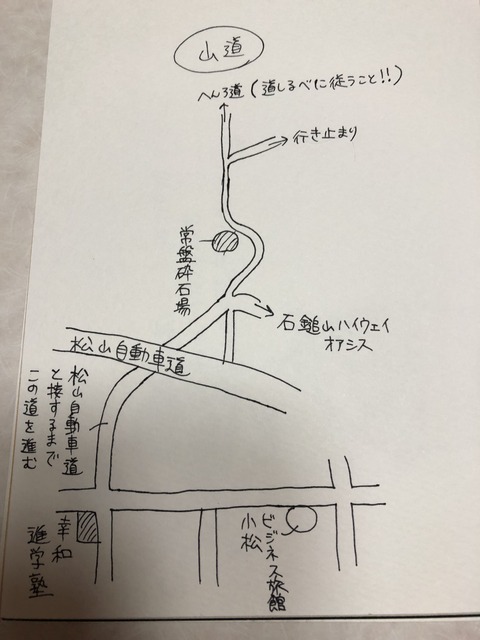 山道
へんろ道(道しるべに従うこと!!)
行き止まり
常盤砕石場
石鎚山ハイウェイ
オアシス
松山自動車道
松山自動車道
と接するまで
この道を進む
ビジネス旅館
小松
幸和
進学塾